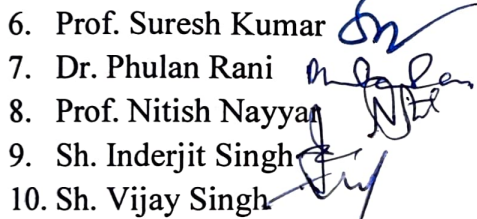 6. Prof. Suresh Kumar
7. Dr. Phulan Rani
8. Prof. Nitish Nayyar
9. Sh. Inderjit Singh
10. Sh. Vijay Singh